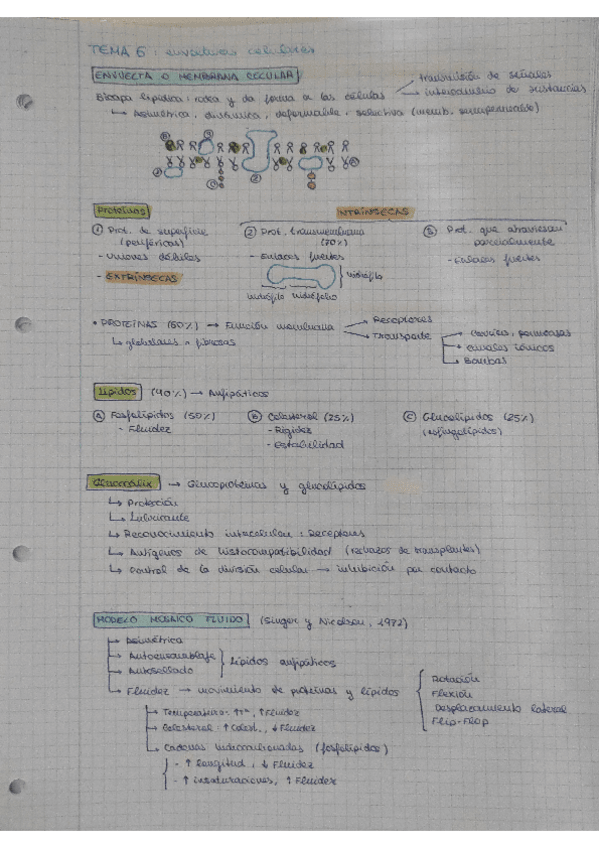 TEMA 6: envolturas celulares
ENVUELTA O MEMBRANA CELULAR
transmisión de señales
Bicapa lipídica: rodea y da forma a las células
intercambio de sustancias
Asimétrica, dinámica, deformable, selectiva (memb. semipermeable)
Proteínas
INTRINSECAS
① Prot. de superficie (periféricas)
- Uniones débiles
- EXTRÍNSECAS
② Prot. transmembrana (70%)
- Enlaces fuertes
hidrófilo
hidrófilo hidrófilo
③ Prot. que atraviesan parcialmente
- Enlaces fuertes
• PROTEÍNAS (60%) → Función membrana
Receptores
Transporte
permeasas
canales iónicos
Bombas
↳ globulares o fibrosas
Lípidos (40%) → Anfipáticos
Ⓐ Fosfolípidos (50%)
- Fluidez
Ⓑ Colesterol (25%)
- Rigidez
- Estabilidad
Ⓒ Glucolípidos (25%)
(esfingolípidos)
Glucocálix → Glucoproteínas y glucolípidos
↳ Protección
↳ Lubricante
↳ Reconocimiento intracelular: Receptores
↳ Antígenos de histocompatibilidad (rechazos de transplantes)
↳ Control de la división celular → inhibición por contacto
MODELO MOSAICO FLUIDO (Singer y Nicolson, 1972)
Asimétrica
Autoensamblaje
Autosellado
Lípidos anfipáticos
Fluidez → movimiento de proteínas y lípidos
Rotación
Flexión
Desplazamiento lateral
Flip-Flop
Temperatura: ↑Tª, ↑Fluidez
Colesterol: ↑Colest., ↓Fluidez
Cadenas hidrocarbonadas (fosfolípidos)
- ↑ longitud, ↓ Fluidez
- ↑ insaturaciones, ↑ Fluidez